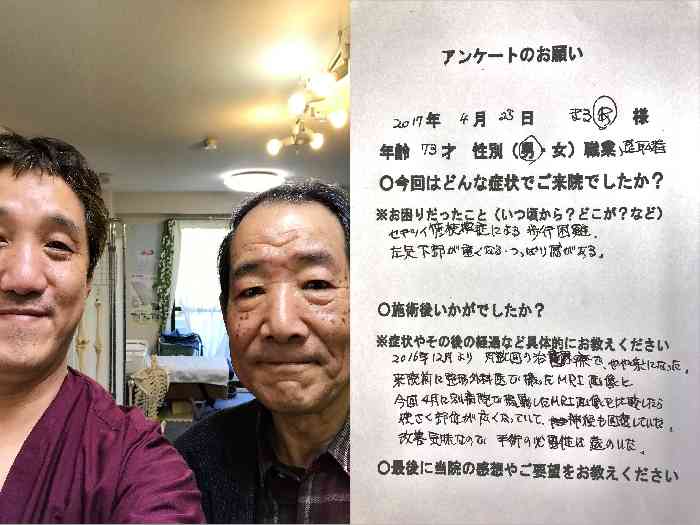 アンケートのお願い
2017年 4月 25日 様
年齢 73才 性別（男・女）職業
〇今回はどんな症状でご来院でしたか？
※お困りだったこと（いつ頃から？どこが？など）
による歩行困難。
左足下部が重くなる・つっぱり感がある。
〇施術後いかがでしたか？
※症状やその後の経過など具体的にお教えください
2016年12月より 数回の治療で、やや楽になった。
来院前に整形外科医で撮ったMRI画像と
今回4月に別病院で撮影したMRI画像を比較したら
狭さく部位が広くなっていて、神経も回復していた。
改善気味なので 手術の必要性は
〇最後に当院の感想やご要望をお教えください